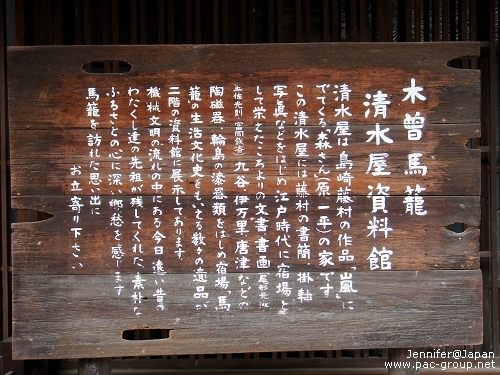 木曽馬籠
清水屋資料館
清水屋は島崎藤村の作品「嵐」に
でてくる「森さん」(原一平)の家です
この清水屋には藤村の書簡、掛軸
写真などをはじめ江戸時代に宿場と
して栄えたころよりの文書書画
九谷、伊万里、唐津などの
陶磁器、輪島の漆器類をはじめ宿場「馬
籠の生活文化史ともいえる数々の遺品が
二階の資料館に展示してあります
機械文明の流れの中にある今日、遠い昔の
わたくし達の祖先が残してくれた、素朴な
ふるさとの心に深い郷愁を感じます
馬籠を訪れた思い出に
お立寄り下さい
Jennifer@Japan
www.pac-group.net